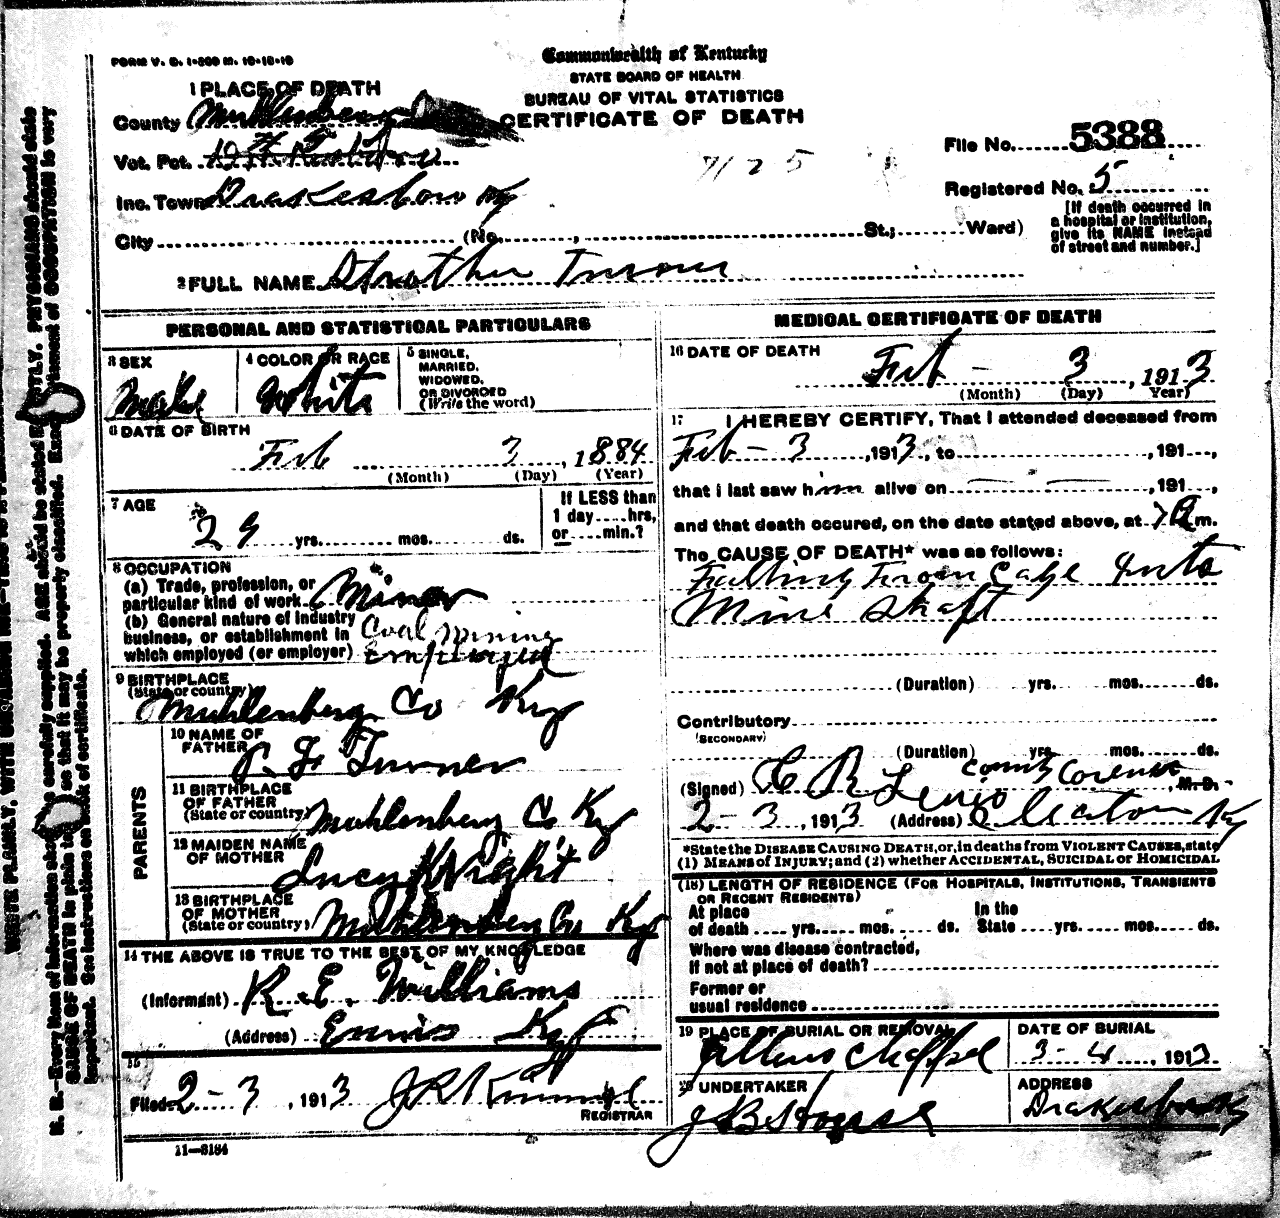 FORM V. S. 1-200 M. 10-18-10
Commonwealth of Kentucky
STATE BOARD OF HEALTH
BUREAU OF VITAL STATISTICS
CERTIFICATE OF DEATH
1 PLACE OF DEATH
County Muhlenberg
Vot. Pct.
Inc. Town Drakesboro Ky
City (No. , St.; Ward)
7125
File No. 5388
Registered No. 5
[If death occurred in
a hospital or institution,
give its NAME instead
of street and number.]
2 FULL NAME Strother Turner
PERSONAL AND STATISTICAL PARTICULARS
3 SEX
Male
4 COLOR OR RACE
White
5 SINGLE,
MARRIED,
WIDOWED,
OR DIVORCED
(Write the word)
6 DATE OF BIRTH
Feb 3, 1884
(Month) (Day) (Year)
7 AGE
29 yrs. mos. ds.
If LESS than
1 day....hrs,
or....min.?
8 OCCUPATION
(a) Trade, profession, or
particular kind of work Miner
(b) General nature of industry
business, or establishment in
which employed (or employer)
Coal Mining
Employed
9 BIRTHPLACE
(State or country)
Muhlenberg Co Ky
PARENTS
10 NAME OF
FATHER
F Turner
11 BIRTHPLACE
OF FATHER
(State or country)
Muhlenberg Co Ky
12 MAIDEN NAME
OF MOTHER
Lucy Knight
13 BIRTHPLACE
OF MOTHER
(State or country)
Muhlenberg Co Ky
14 THE ABOVE IS TRUE TO THE BEST OF MY KNOWLEDGE
(Informant) R. E. Williams
(Address) Ennis Ky
15
Filed 2-3, 1913
REGISTRAR
11-3184
MEDICAL CERTIFICATE OF DEATH
16 DATE OF DEATH
Feb - 3, 1913
(Month) (Day) Year)
17 I HEREBY CERTIFY, That I attended deceased from
Feb - 3, 1913, to , 191 ,
that I last saw him alive on , 191 ,
and that death occured, on the date stated above, at 7 a m.
The CAUSE OF DEATH* was as follows:
Falling From Cage Into
Mine Shaft
(Duration) yrs. mos. ds.
Contributory
(SECONDARY)
(Duration) yrs. mos. ds.
(Signed) C B Lewis County Coroner M. D.
2-3, 1913 (Address) Cleaton Ky
*State the DISEASE CAUSING DEATH, or, in deaths from VIOLENT CAUSES, state
(1) MEANS of INJURY; and (2) whether ACCIDENTAL, SUICIDAL or HOMICIDAL
(18) LENGTH OF RESIDENCE (FOR HOSPITALS, INSTITUTIONS, TRANSIENTS
OR RECENT RESIDENTS)
At place In the
of death yrs. mos. ds. State yrs. mos. ds.
Where was disease contracted,
If not at place of death?
Former or
usual residence
19 PLACE OF BURIAL OR REMOVAL
Chappel
DATE OF BURIAL
3-4, 1913
20 UNDERTAKER
J B House
ADDRESS
Drakesboro Ky
WRITE PLAINLY, WITH UNFADING INK
N. B.—Every item of information should be carefully supplied. AGE should be stated EXACTLY. PHYSICIANS should state
CAUSE OF DEATH in plain terms, so that it may be properly classified. Exact statement of OCCUPATION is very
important. See instructions on back of certificate.